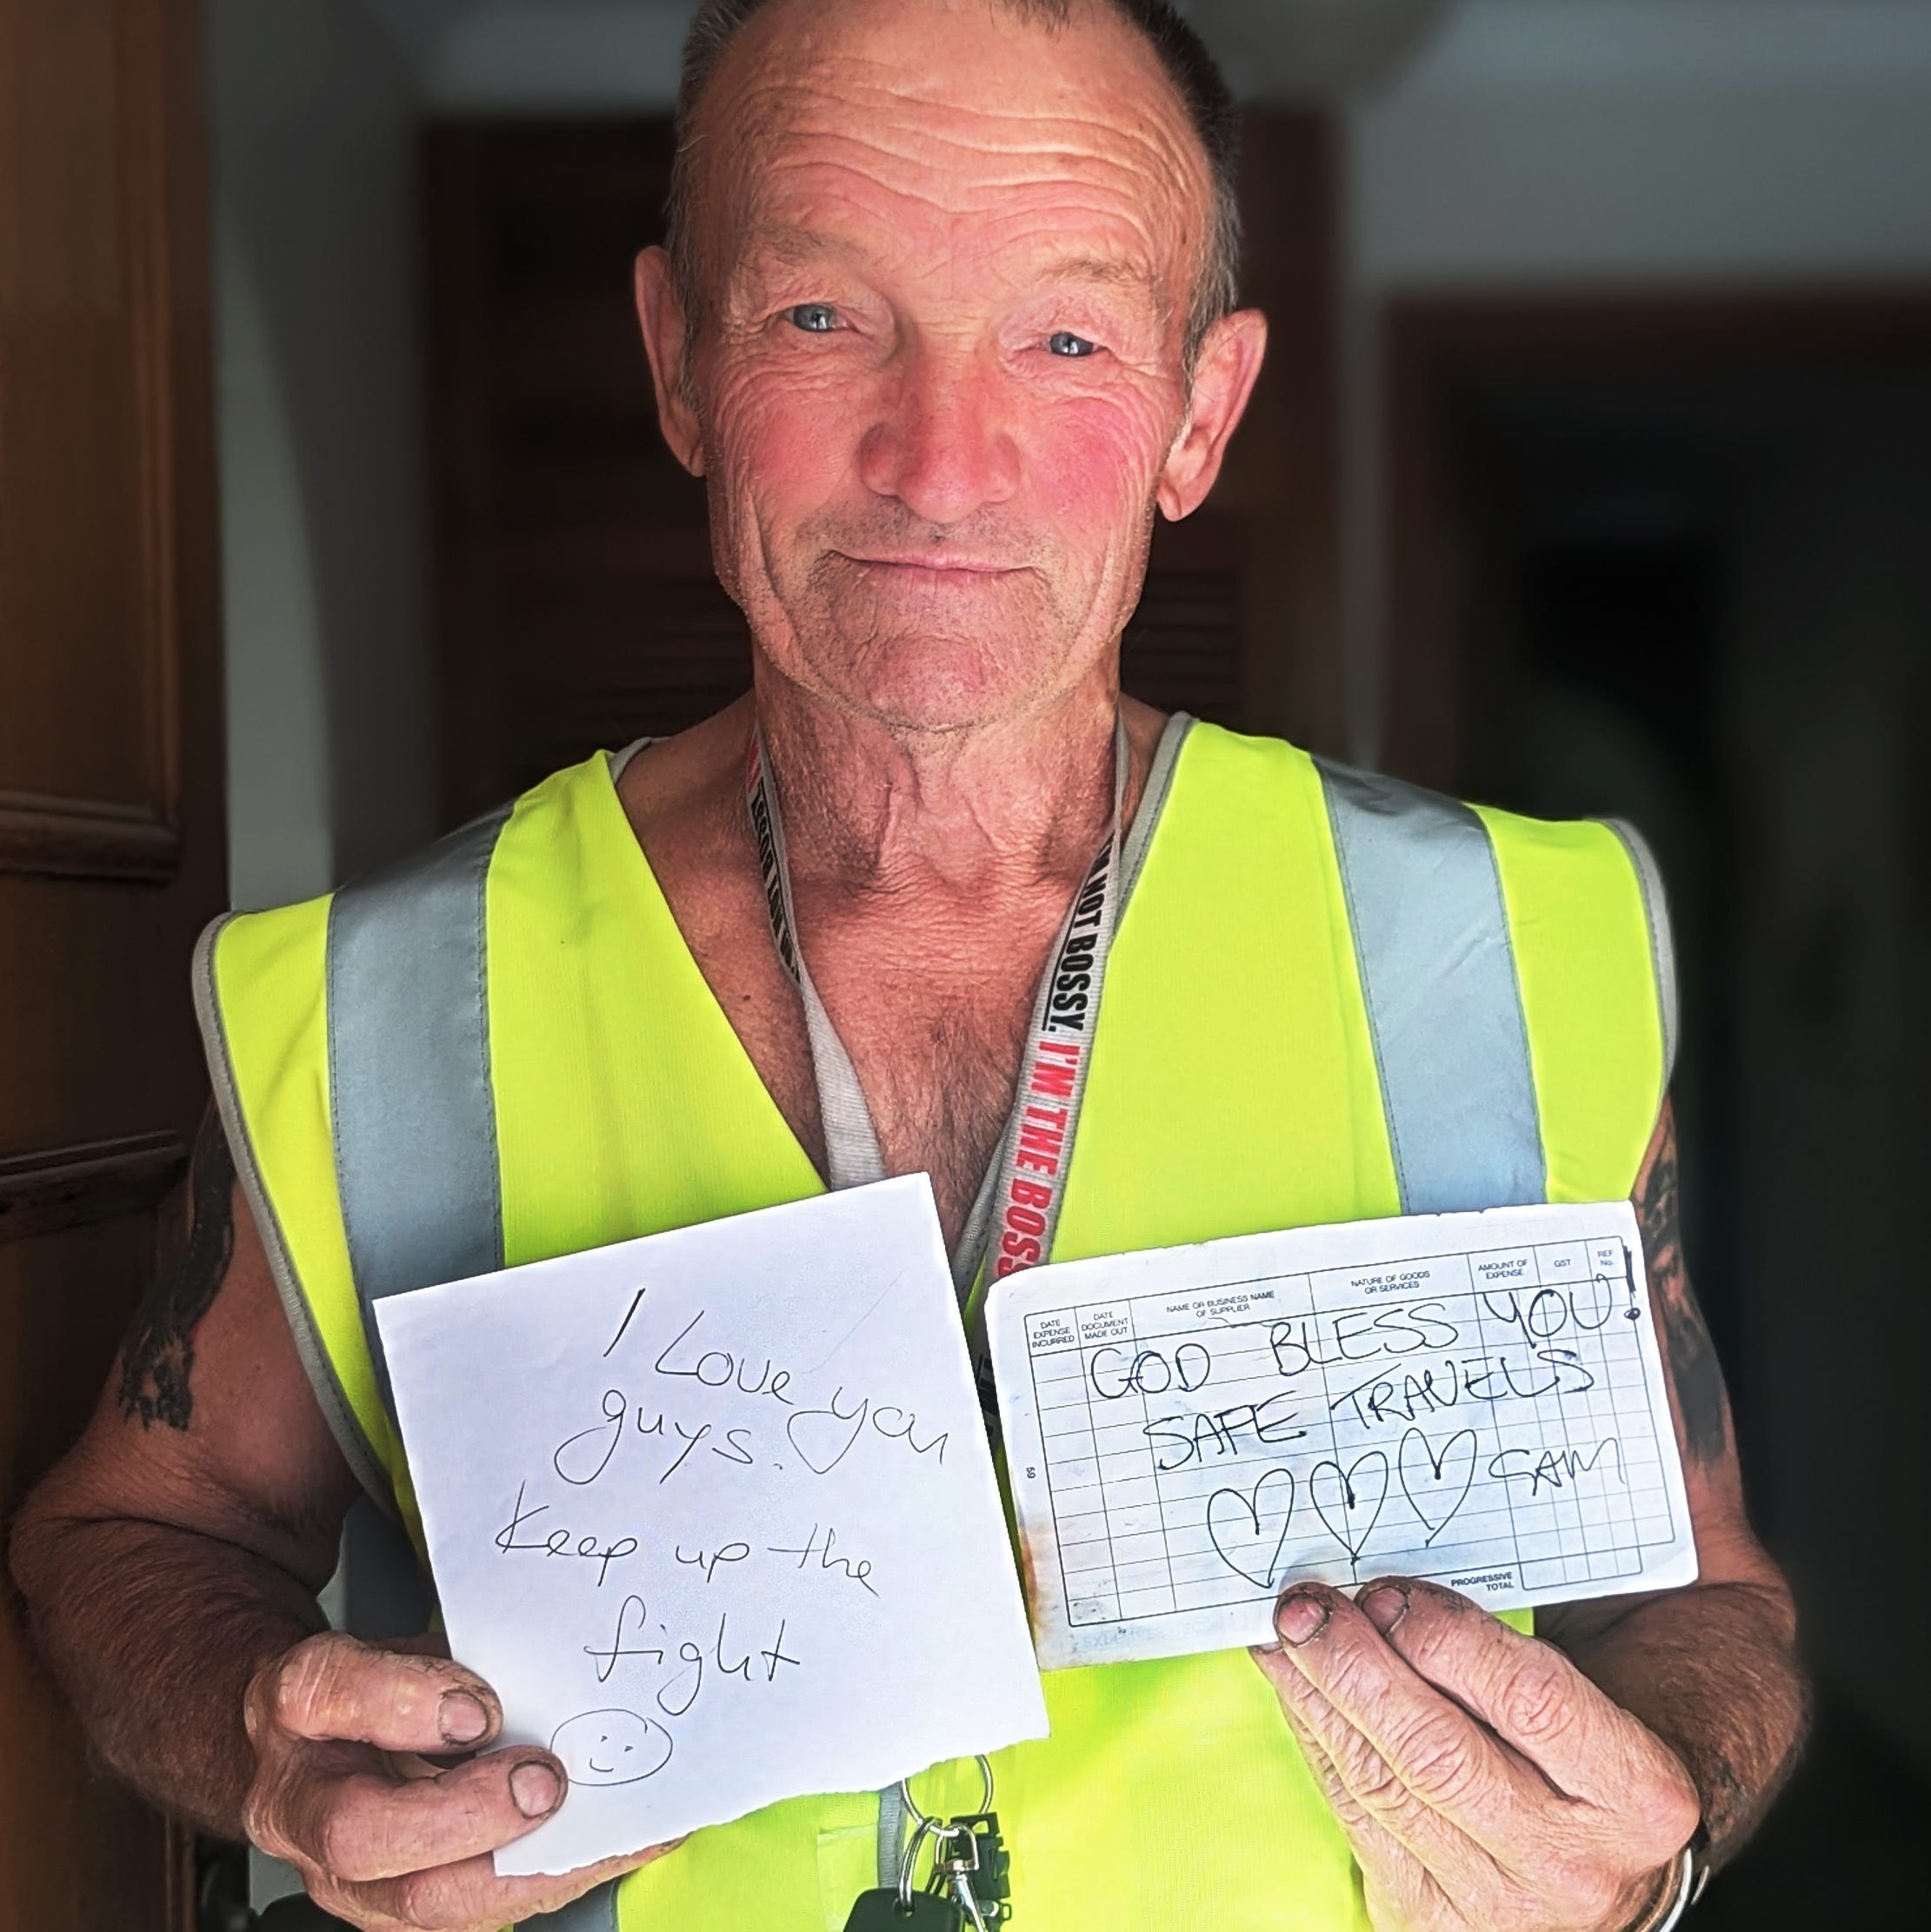 I'M NOT BOSSY. I'M THE BOSS
I Love you
guys.
Keep up the
fight
DATE EXPENSE INCURRED
DATE DOCUMENT MADE OUT
NAME OR BUSINESS NAME OF SUPPLIER
NATURE OF GOODS OR SERVICES
AMOUNT OF EXPENSE
GST
REF No.
GOD BLESS YOU!
SAFE TRAVELS
SAM
50
PROGRESSIVE TOTAL